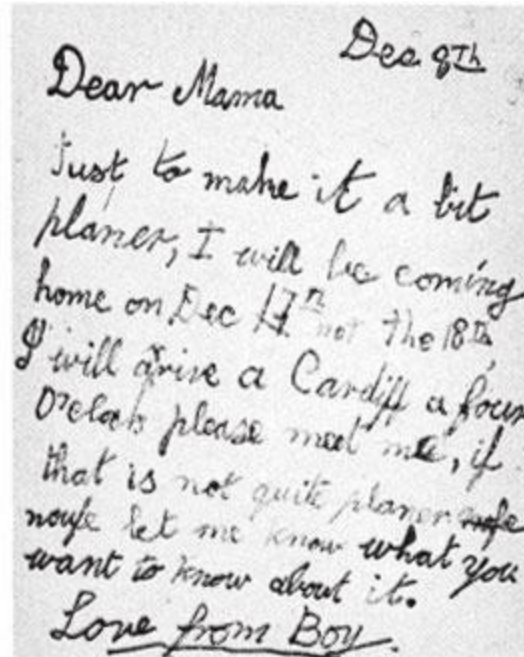 Dec 8Th
Dear Mama
Just to make it a bit
planer, I will be coming
home on Dec 17th not the 18Th,
I will arive a Cardiff a four
O'clock please meet me, if
that is not quite planer
noufe let me know what you
want to know about it.
Love from Boy.